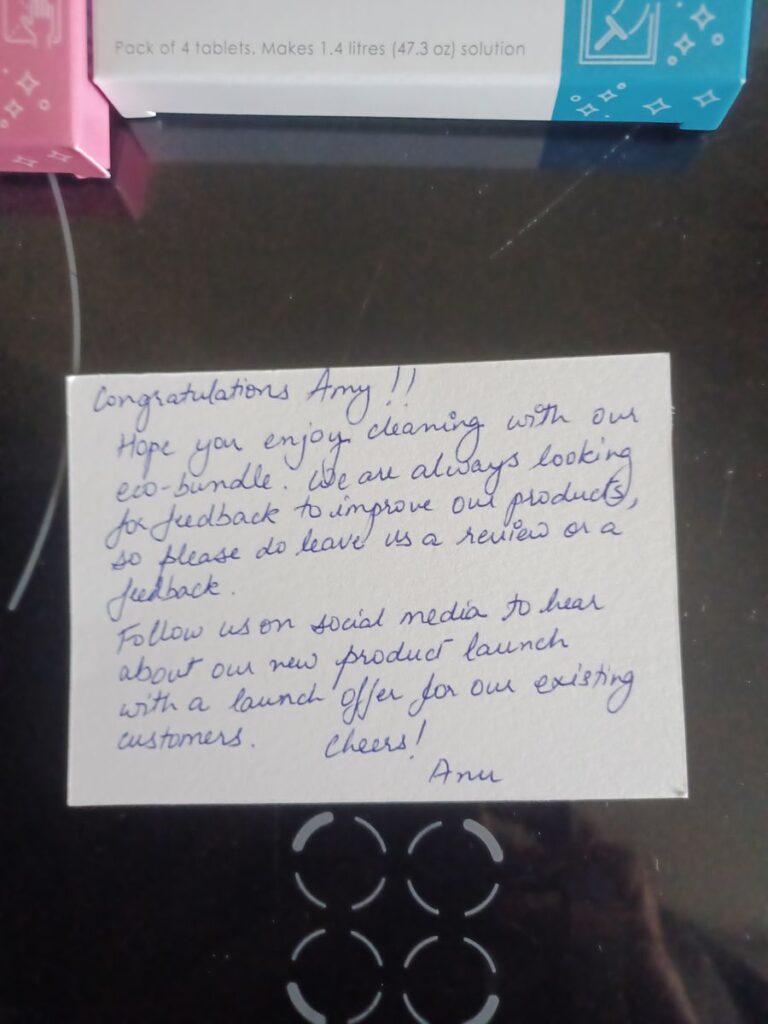 Pack of 4 tablets. Makes 1.4 litres (47.3 oz) solution
Congratulations Amy !!
Hope you enjoy cleaning with our
eco-bundle. We are always looking
for feedback to improve our products,
so please do leave us a review or a
feedback.
Follow us on social media to hear
about our new product launch
with a launch offer for our existing
customers. Cheers!
Anu